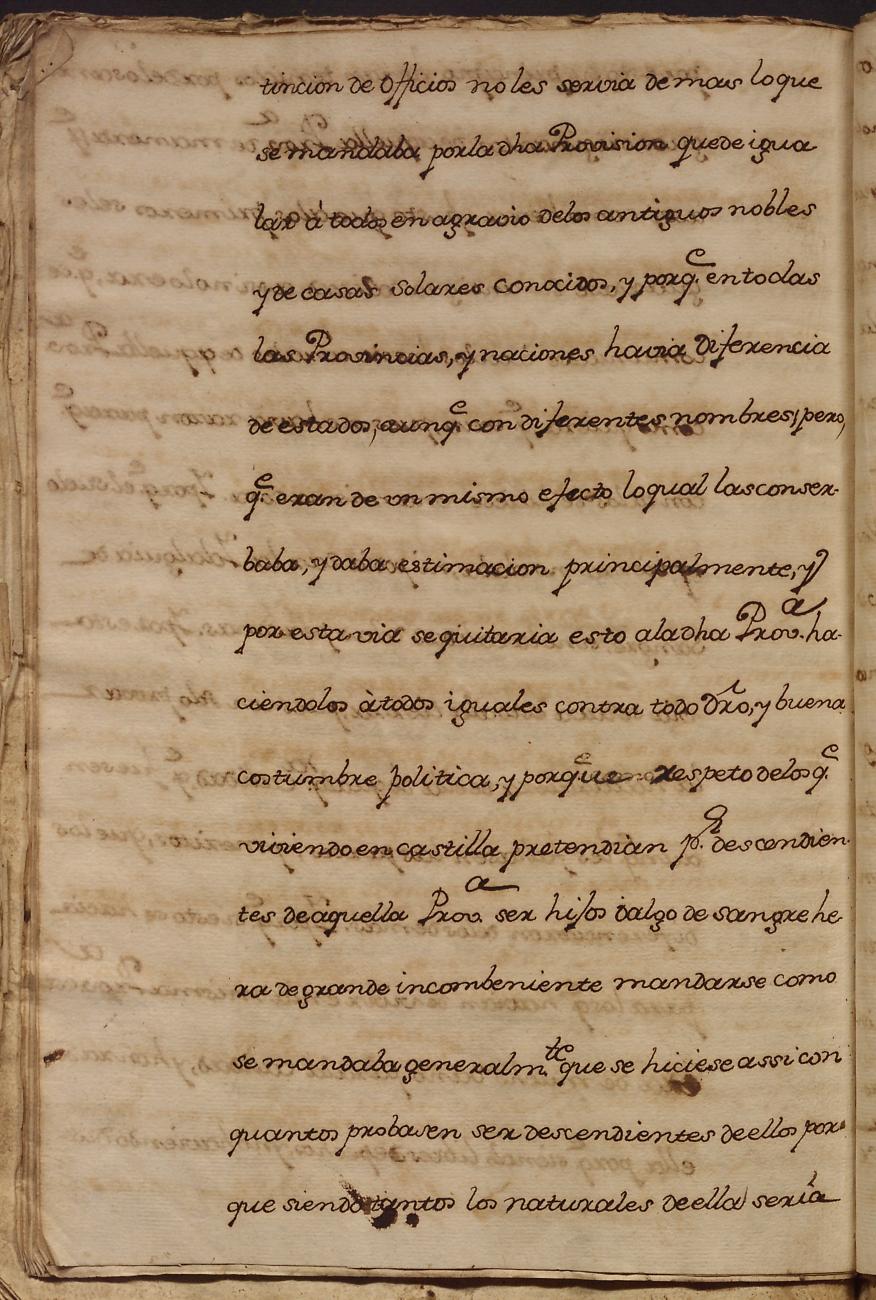 tincion de Officios no les servia de mas lo que
se mandaba por la dha Provision que de igua
lar à todos en agravio delos antiguos nobles
y de casas solares conocidos, y porq.e en todas
las Provincias, y naciones havia Diferencia
de estados, aunq.e con diferentes nombres, pero,
q.e eran de vn mismo efecto lo qual las conser-
baba, y daba estimacion principalmente, y
por esta via se quitaria esto ala dha Prov.a ha-
ciendolos à todos iguales contra todo Dro, y buena
costumbre politica, y porque respeto delos q.e
viviendo en castilla pretendian p.r descendien-
tes de aquella Prov.a ser hijos dalgo de sangre he-
ra de grande incombeniente mandarse como
se mandaba generalm.te que se hiciese assi con
quantos probasen ser descendientes de ellos por-
que siendo tantos los naturales de ella seria